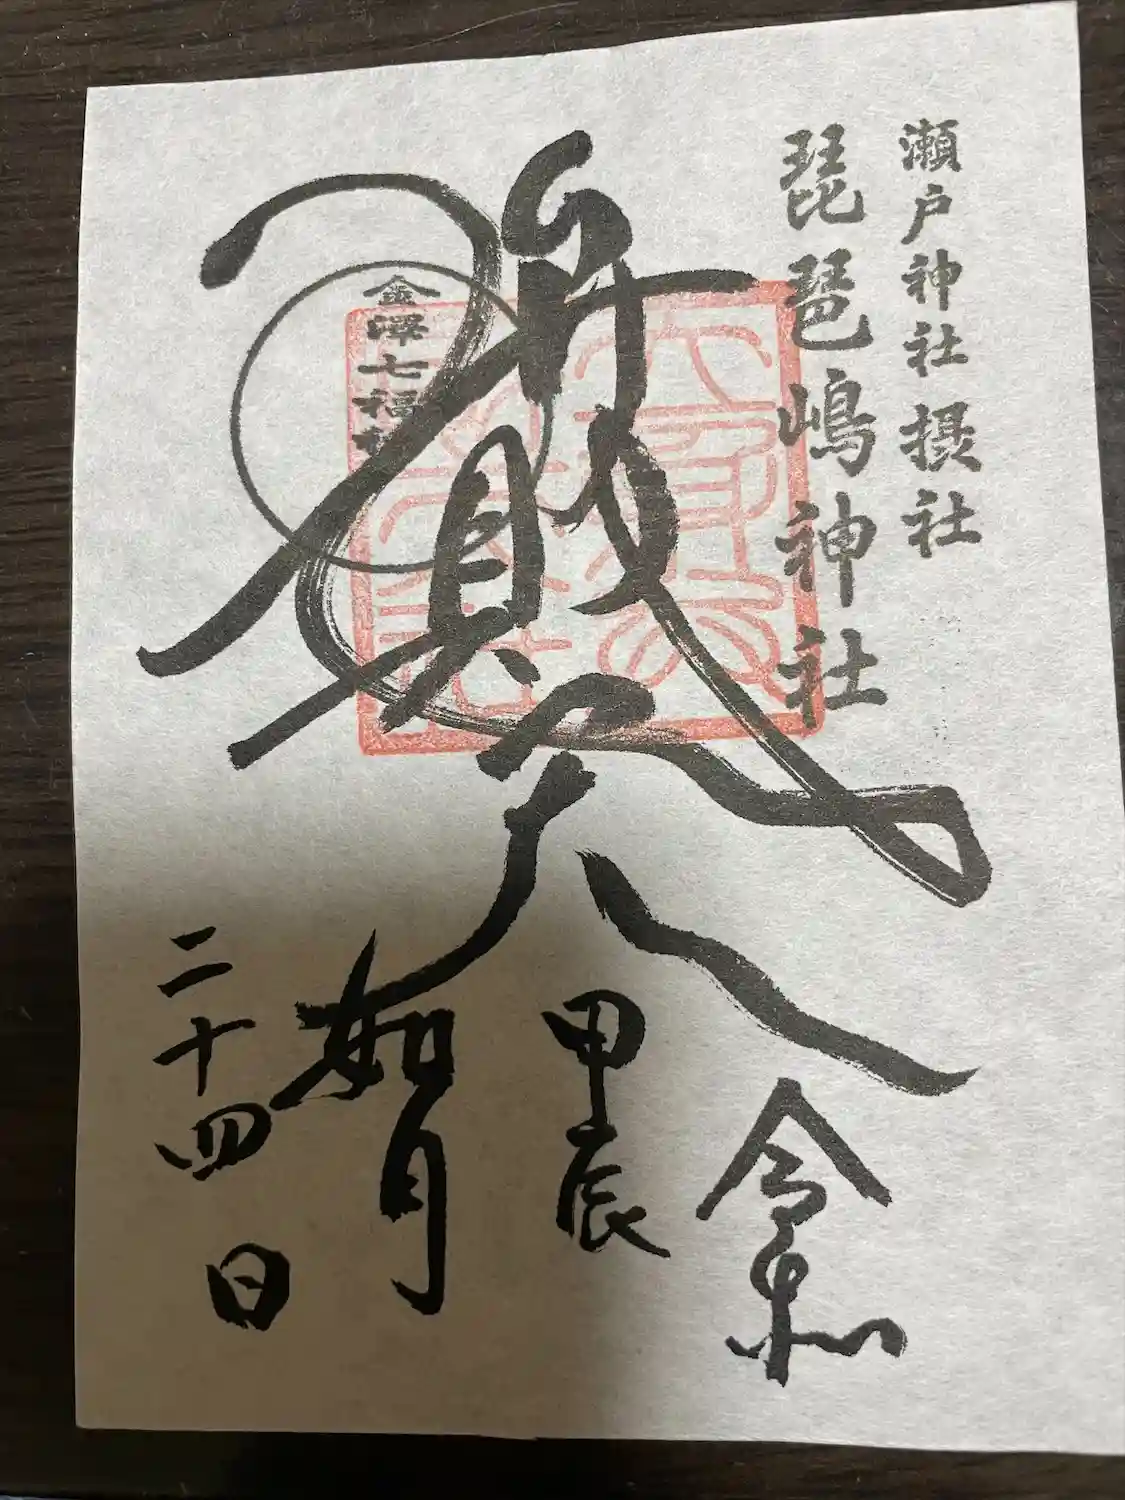 瀬戸神社摂社
琵琶嶋神社
弁財天
金澤七福
令和
甲辰
如月
二十四日